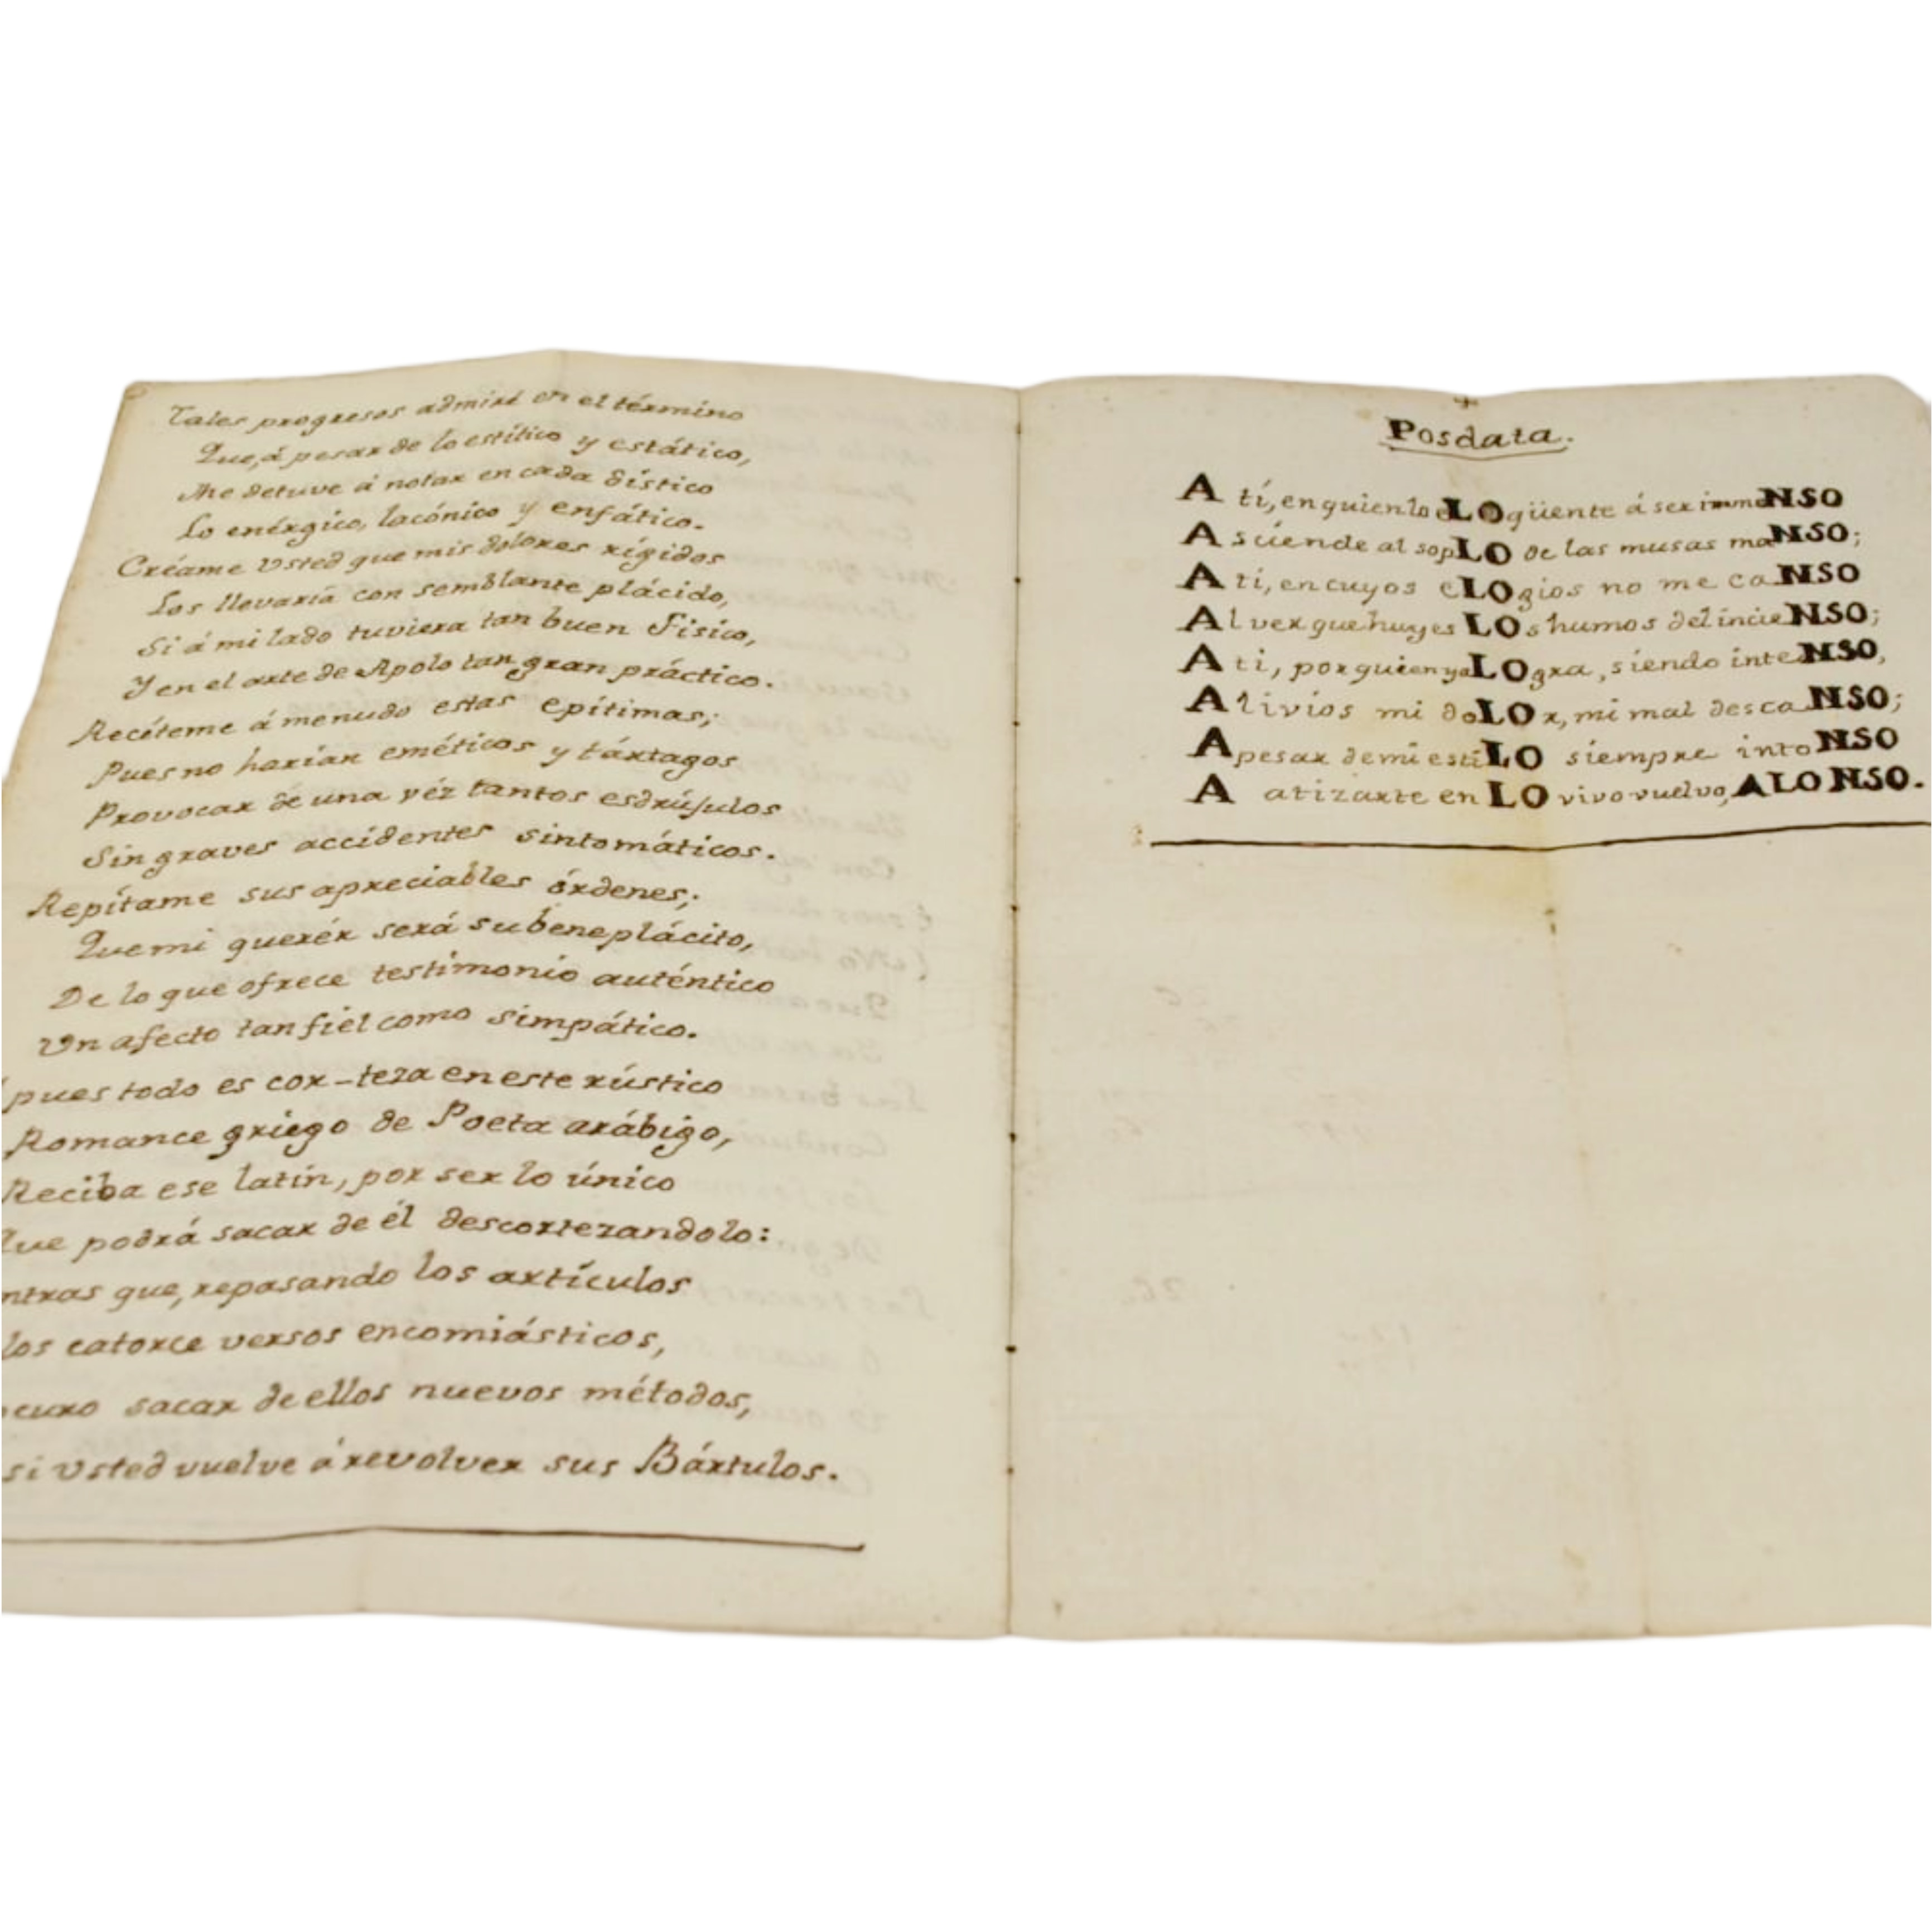 Tales progresos admiré en el término
Que, á pesar de lo estítico y estático,
Me detuve á notar en cada dístico
Lo enérgico, lacónico y enfático.
Créame Usted que mis dolores rígidos
Los llevaría con semblante plácido,
Si á mi lado tuviera tan buen Físico,
Y en el arte de Apolo tan gran práctico.
Recéteme á menudo estas epítimas;
Pues no harían eméticos y tártagos
Provocar de una véz tantos esdrújulos
Sin graves accidentes sintomáticos.
Repítame sus apreciables órdenes;
Que mi querér será su beneplácito,
De lo que ofrece testimonio auténtico
Un afecto tan fiel como simpático.
pues todo es cor-teza en este rústico
Romance griego de Poeta arábigo,
Reciba ese latín, por ser lo único
Que podrá sacar de él descortezandolo:
ntras que, repasando los artículos
los catorce versos encomiásticos,
curo sacar de ellos nuevos métodos,
si Usted vuelve á revolver sus Bártulos.
Posdata.
A tí, en quien lo eLOqüente á ser immeNSO
Asciende al sopLO de las musas maNSO;
A ti, en cuyos eLOgios no me caNSO
Al ver que huyes LOs humos del incieNSO;
A ti, por quien ya LOgra, siendo inteNSO,
Alivios mi doLOr, mi mal descaNSO;
A pesar de mi estiLO siempre intoNSO
A atizarte en LO vivo vuelvo, ALONSO.